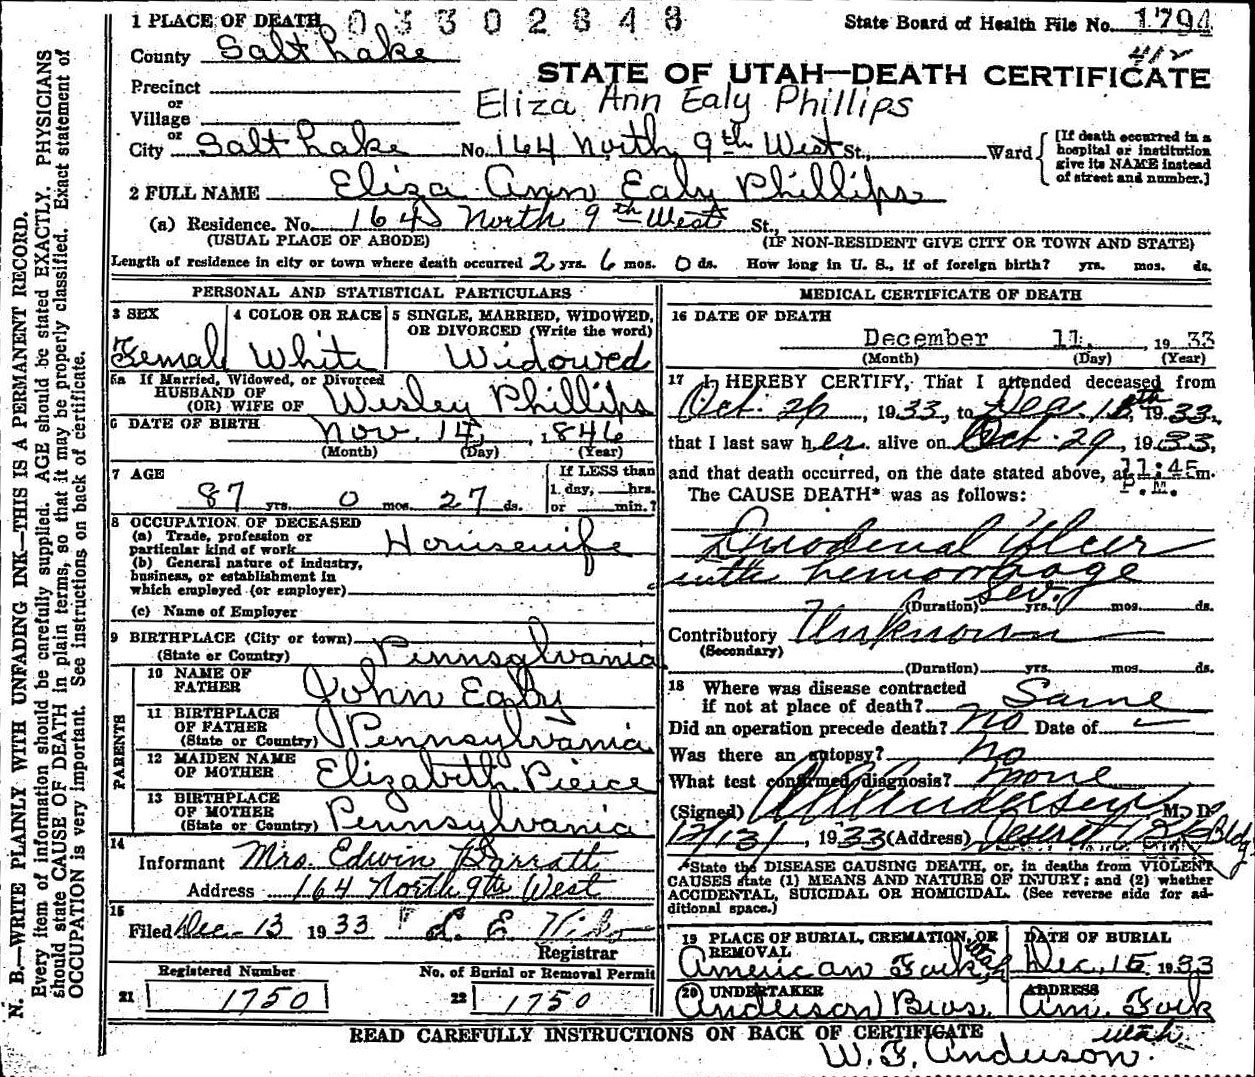 1 PLACE OF DEATH 03302848 State Board of Health File No. 1794
County Salt Lake 412
STATE OF UTAH—DEATH CERTIFICATE
Precinct
or
Village
Eliza Ann Ealy Phillips
or
City Salt Lake No. 164 North 9th West St., Ward
[If death occurred in a hospital or institution give its NAME instead of street and number.]
2 FULL NAME Eliza Ann Ealy Phillips
(a) Residence. No. 164 North 9th West St.,
(USUAL PLACE OF ABODE) (IF NON-RESIDENT GIVE CITY OR TOWN AND STATE)
Length of residence in city or town where death occurred 2 yrs. 6 mos. 0 ds. How long in U. S., if of foreign birth? yrs. mos. ds.
PERSONAL AND STATISTICAL PARTICULARS
3 SEX 4 COLOR OR RACE 5 SINGLE, MARRIED, WIDOWED,
OR DIVORCED (Write the word)
Female White Widowed
5a If Married, Widowed, or Divorced
HUSBAND OF
(OR) WIFE OF Wesley Phillips
6 DATE OF BIRTH Nov. 14, 1846
(Month) (Day) (Year)
7 AGE If LESS than
87 yrs. 0 mos. 27 ds. 1 day, hrs.
or min.?
8 OCCUPATION OF DECEASED
(a) Trade, profession or
particular kind of work Housewife
(b) General nature of industry,
business, or establishment in
which employed (or employer)
(c) Name of Employer
9 BIRTHPLACE (City or town)
(State or Country) Pennsylvania
PARENTS
10 NAME OF
FATHER John Ealy
11 BIRTHPLACE
OF FATHER
(State or Country) Pennsylvania
12 MAIDEN NAME
OF MOTHER Elizabeth Pierce
13 BIRTHPLACE
OF MOTHER
(State or Country) Pennsylvania
14
Informant Mrs. Edwin Barratt
Address 164 North 9th West
15
Filed Dec. 13 1933 L. E.
Registrar
Registered Number No. of Burial or Removal Permit
21 1750 22 1750
MEDICAL CERTIFICATE OF DEATH
16 DATE OF DEATH
December 11, 1933
(Month) (Day) (Year)
17 I HEREBY CERTIFY, That I attended deceased from
Oct. 26, 1933, to Dec. 1933,
that I last saw her alive on Oct. 29, 1933,
and that death occurred, on the date stated above, at 11:45 m.
P.M.
The CAUSE DEATH* was as follows:
Duodenal Ulcer
with hemorrhage
(Duration) Sev. yrs. mos. ds.
Contributory Unknown
(Secondary)
(Duration) yrs. mos. ds.
18 Where was disease contracted
if not at place of death? Same
Did an operation precede death? No Date of
Was there an autopsy? no
What test confirmed diagnosis? none
(Signed) M. D.
12/13/, 1933 (Address) Deseret Bk Bldg
*State the DISEASE CAUSING DEATH, or, in deaths from VIOLENT
CAUSES state (1) MEANS AND NATURE OF INJURY; and (2) whether
ACCIDENTAL, SUICIDAL OR HOMICIDAL. (See reverse side for ad-
ditional space.)
19 PLACE OF BURIAL, CREMATION, OR REMOVAL DATE OF BURIAL
American Fork, Utah Dec. 15 1933
20 UNDERTAKER ADDRESS
Anderson Bros. Am. Fork
Utah
READ CAREFULLY INSTRUCTIONS ON BACK OF CERTIFICATE
W. F. Anderson.
N. B.—WRITE PLAINLY WITH UNFADING INK—THIS IS A PERMANENT RECORD.
Every item of information should be carefully supplied. AGE should be stated EXACTLY. PHYSICIANS
should state CAUSE OF DEATH in plain terms, so that it may be properly classified. Exact statement of
OCCUPATION is very important. See instructions on back of certificate.